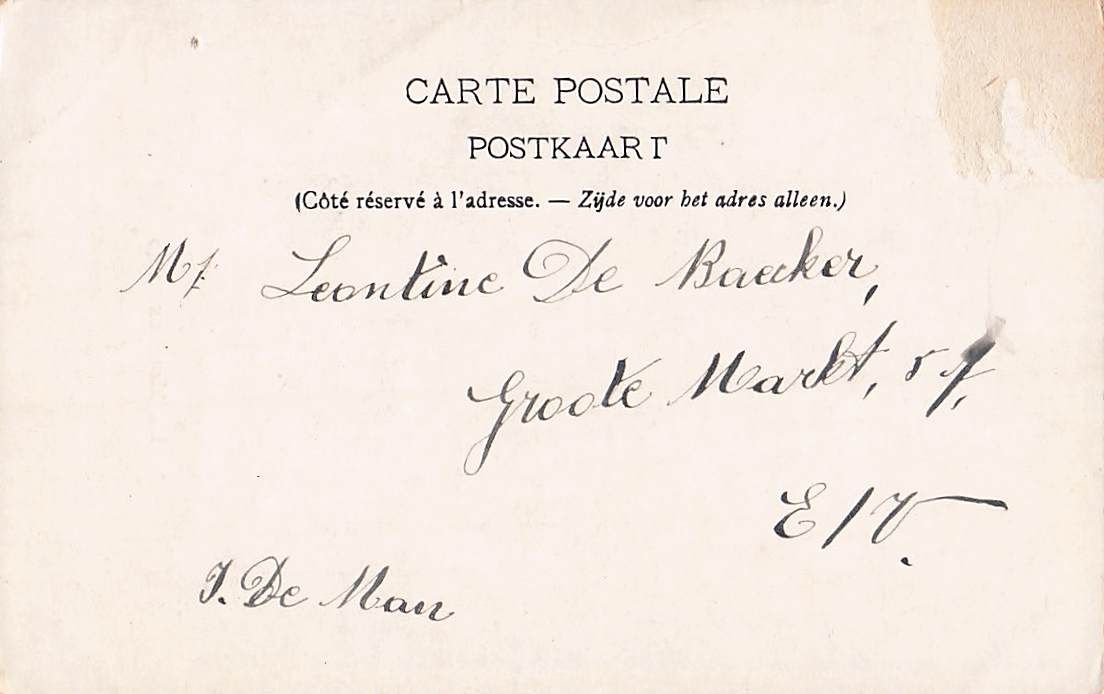 CARTE POSTALE
POSTKAART
(Côté réservé à l'adresse. — Zijde voor het adres alleen.)
Leontine De Baecker,
Groote Markt,
E/V.
J. De Man